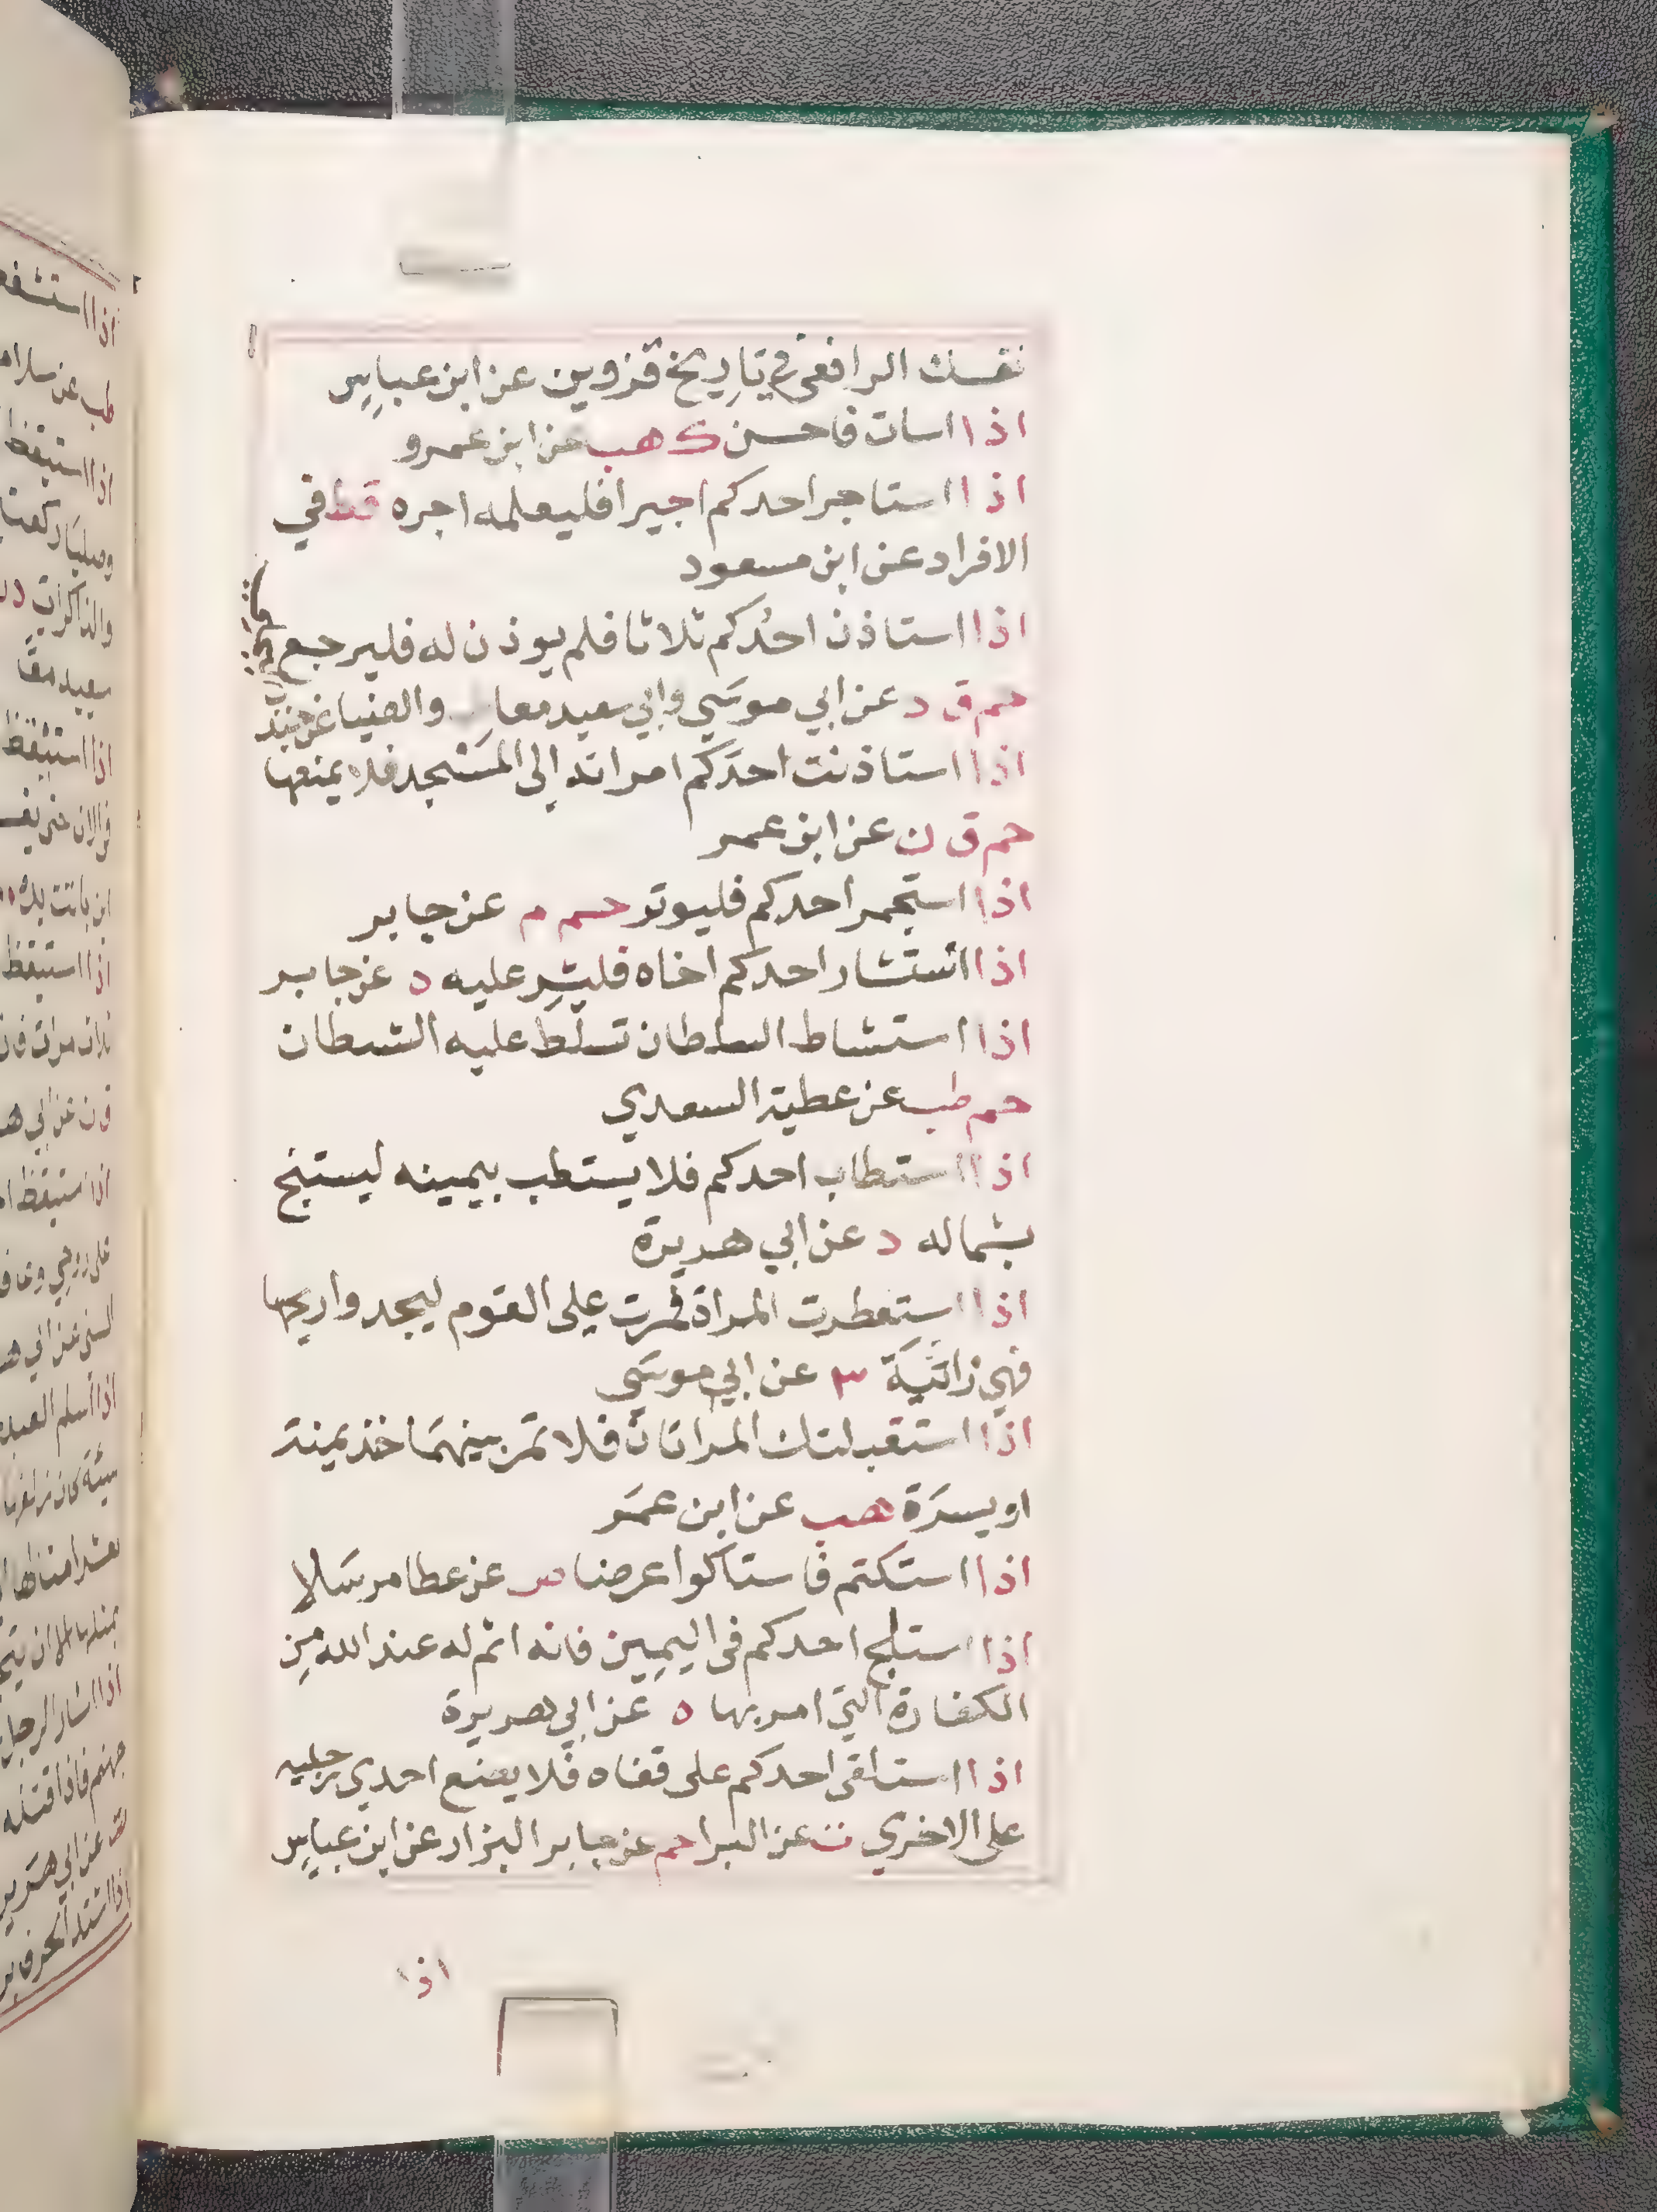 نفسك الرافعي في تاريخ قزوين عن ابن عباس
اذا اسات فاحسن ك هب عن ابن عمرو
اذا استاجر احدكم اجيرا فليعلمه اجره قط في
الافراد عن ابن مسعود
اذا استاذن احدكم ثلاثا فلم يوذن له فليرجع
حم ق د عن ابي موسي وابي سعيد معا والضيا عن جندب
اذا استاذنت احدكم امراته الى المسجد فلا يمنعها
حم ق ن عن ابن عمر
اذا استجمر احدكم فليوتر حم م عن جابر
اذا استشار احدكم اخاه فليشر عليه ه عن جابر
اذا استشاط السلطان تسلط عليه الشيطان
حم طب عن عطية السعدي
اذا استطاب احدكم فلا يستطب بيمينه ليستنج
بشماله ه عن ابي هريرة
اذا استعطرت المراة فمرت على القوم ليجدوا ريحها
فهي زانية ٣ عن ابي موسي
اذا استقبلتك المراتان فلا تمر بينهما خذ يمنة
او يسرة هب عن ابن عمر
اذا استكتم فاستاكوا عرضا ص عن عطا مرسلا
اذا استلج احدكم في اليمين فانه اثم له عند الله من
الكفارة التي امر بها ه عن ابي هريرة
اذا استلقى احدكم على قفاه فلا يضع احدي رجليه
على الاخري ت عن البرا حم عن جابر البزار عن ابن عباس
اذا